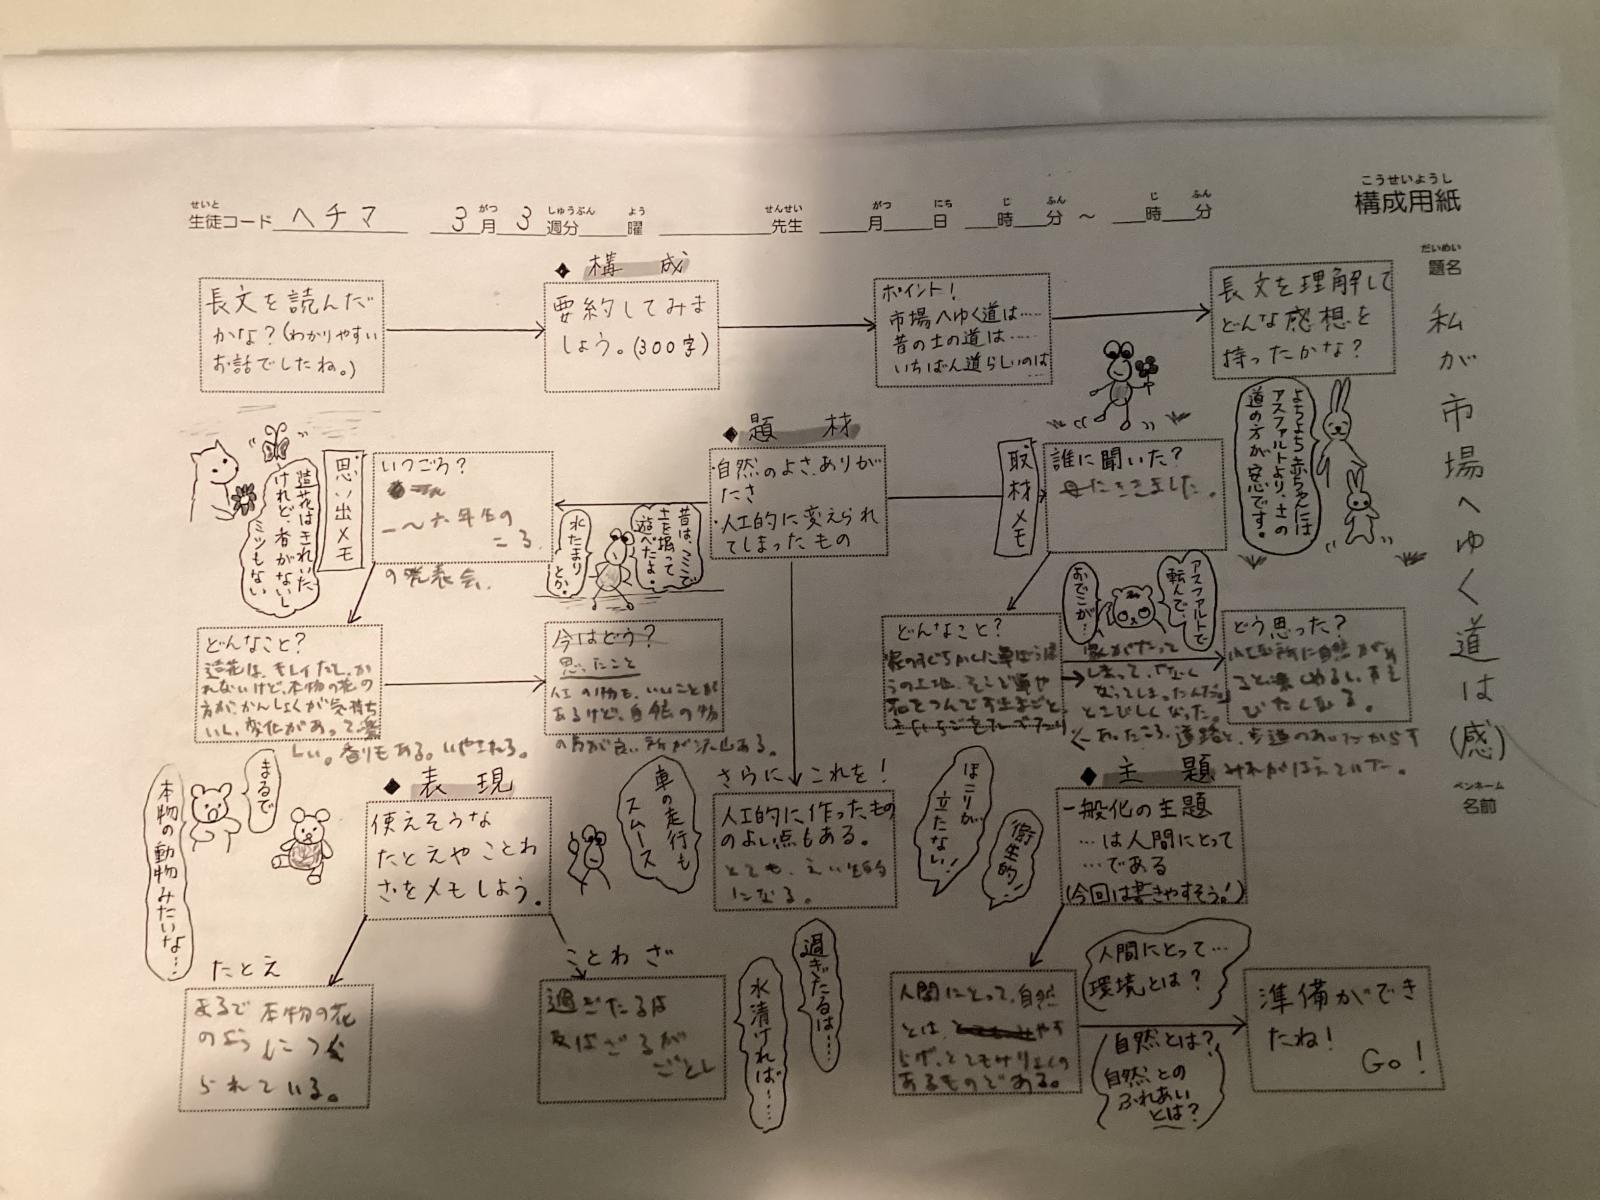 構成用紙
こうせいようし
生徒コード ヘチマ 3月 3週分 曜 先生 月 日 時 分 ～ 時 分
せいと がつ しゅうぶん よう せんせい がつ にち じ ふん じ ふん
題名
だいめい
私が市場へゆく道は(感)
名前
ペンネーム
◆構成
長文を読んだ
かな?(わかりやすい
お話でしたね。)
要約してみま
しょう。(300字)
ポイント!
市場へゆく道は……
昔の土の道は……
いちばん道らしいのは
…
長文を理解して
どんな感想を
持ったかな?
よちよち赤ちゃんには
アスファルトより、土の
道の方が安心です。
◆題材
・自然のよさ、ありが
たさ
・人工的に変えられ
てしまったもの
取材メモ
誰に聞いた?
母にききました。
思い出メモ
いつごろ?
一~六年生の
ころ
の発表会、
造花はきれいだ
けれど、香がないし
ミツもない
昔は、ここで
土を掘って
遊べたよ。
水たまり
とか。
どんなこと?
造花は、キレイだし、か
れないけど、本物の花の
方が、かんしょくが気持ち
いし、変化があって楽
しい。香りもある。いやされる。
今はどう?
思ったこと
人工の物も、いいことが
あるけど、自然の物
の方が良い所が沢山ある。
アスファルトで
転んで、
おでこが…
どんなこと?
家がたって
しまって、
なってしまったんだ
とさびしくなった。
どう思った?
る。
さらにこれを!
人工的に作ったもの
のよい点もある。
とても、えい生的
になる。
車の走行も
スムーズ
ほこりが
立たない!
衛生的!
◆主題
一般化の主題
…は人間にとって
…である
(今回は書きやすそう!)
人間にとって、自然
とは、やす
らげ、とてもサリょくの
あるものである。
人間にとって…
環境とは?
自然とは?
自然との
ふれあい
とは?
準備ができ
たね!
Go!
◆表現
使えそうな
たとえやことわ
ざをメモしよう。
まるで
本物の動物みたいな…
たとえ
まるで本物の花
のようにつく
られている。
ことわざ
過ぎたるは
及ばざるが
ごとし
過ぎたるは……
水清ければ……